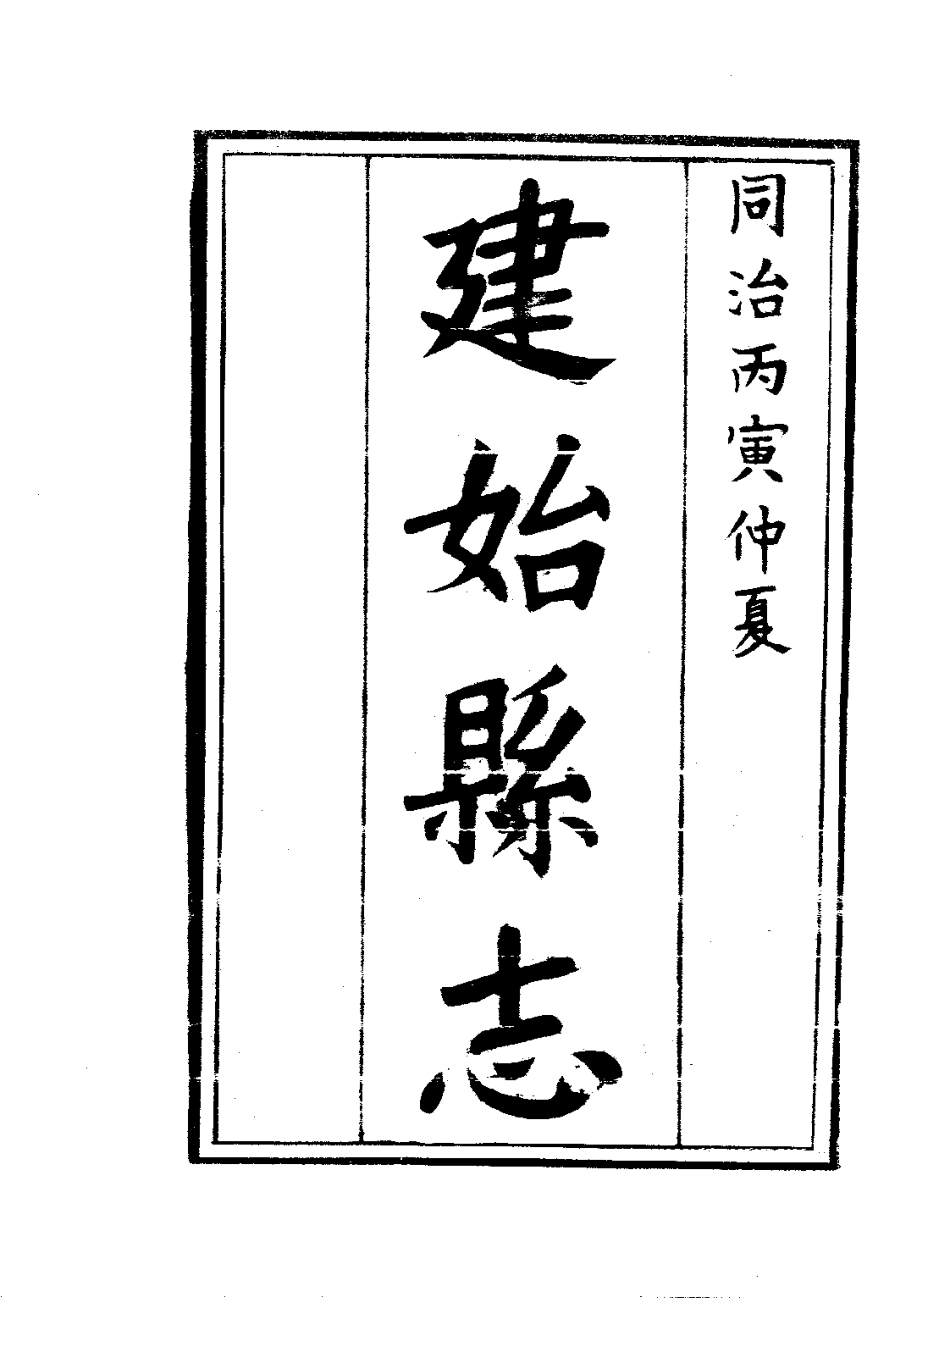 同治丙寅仲夏
建始縣志